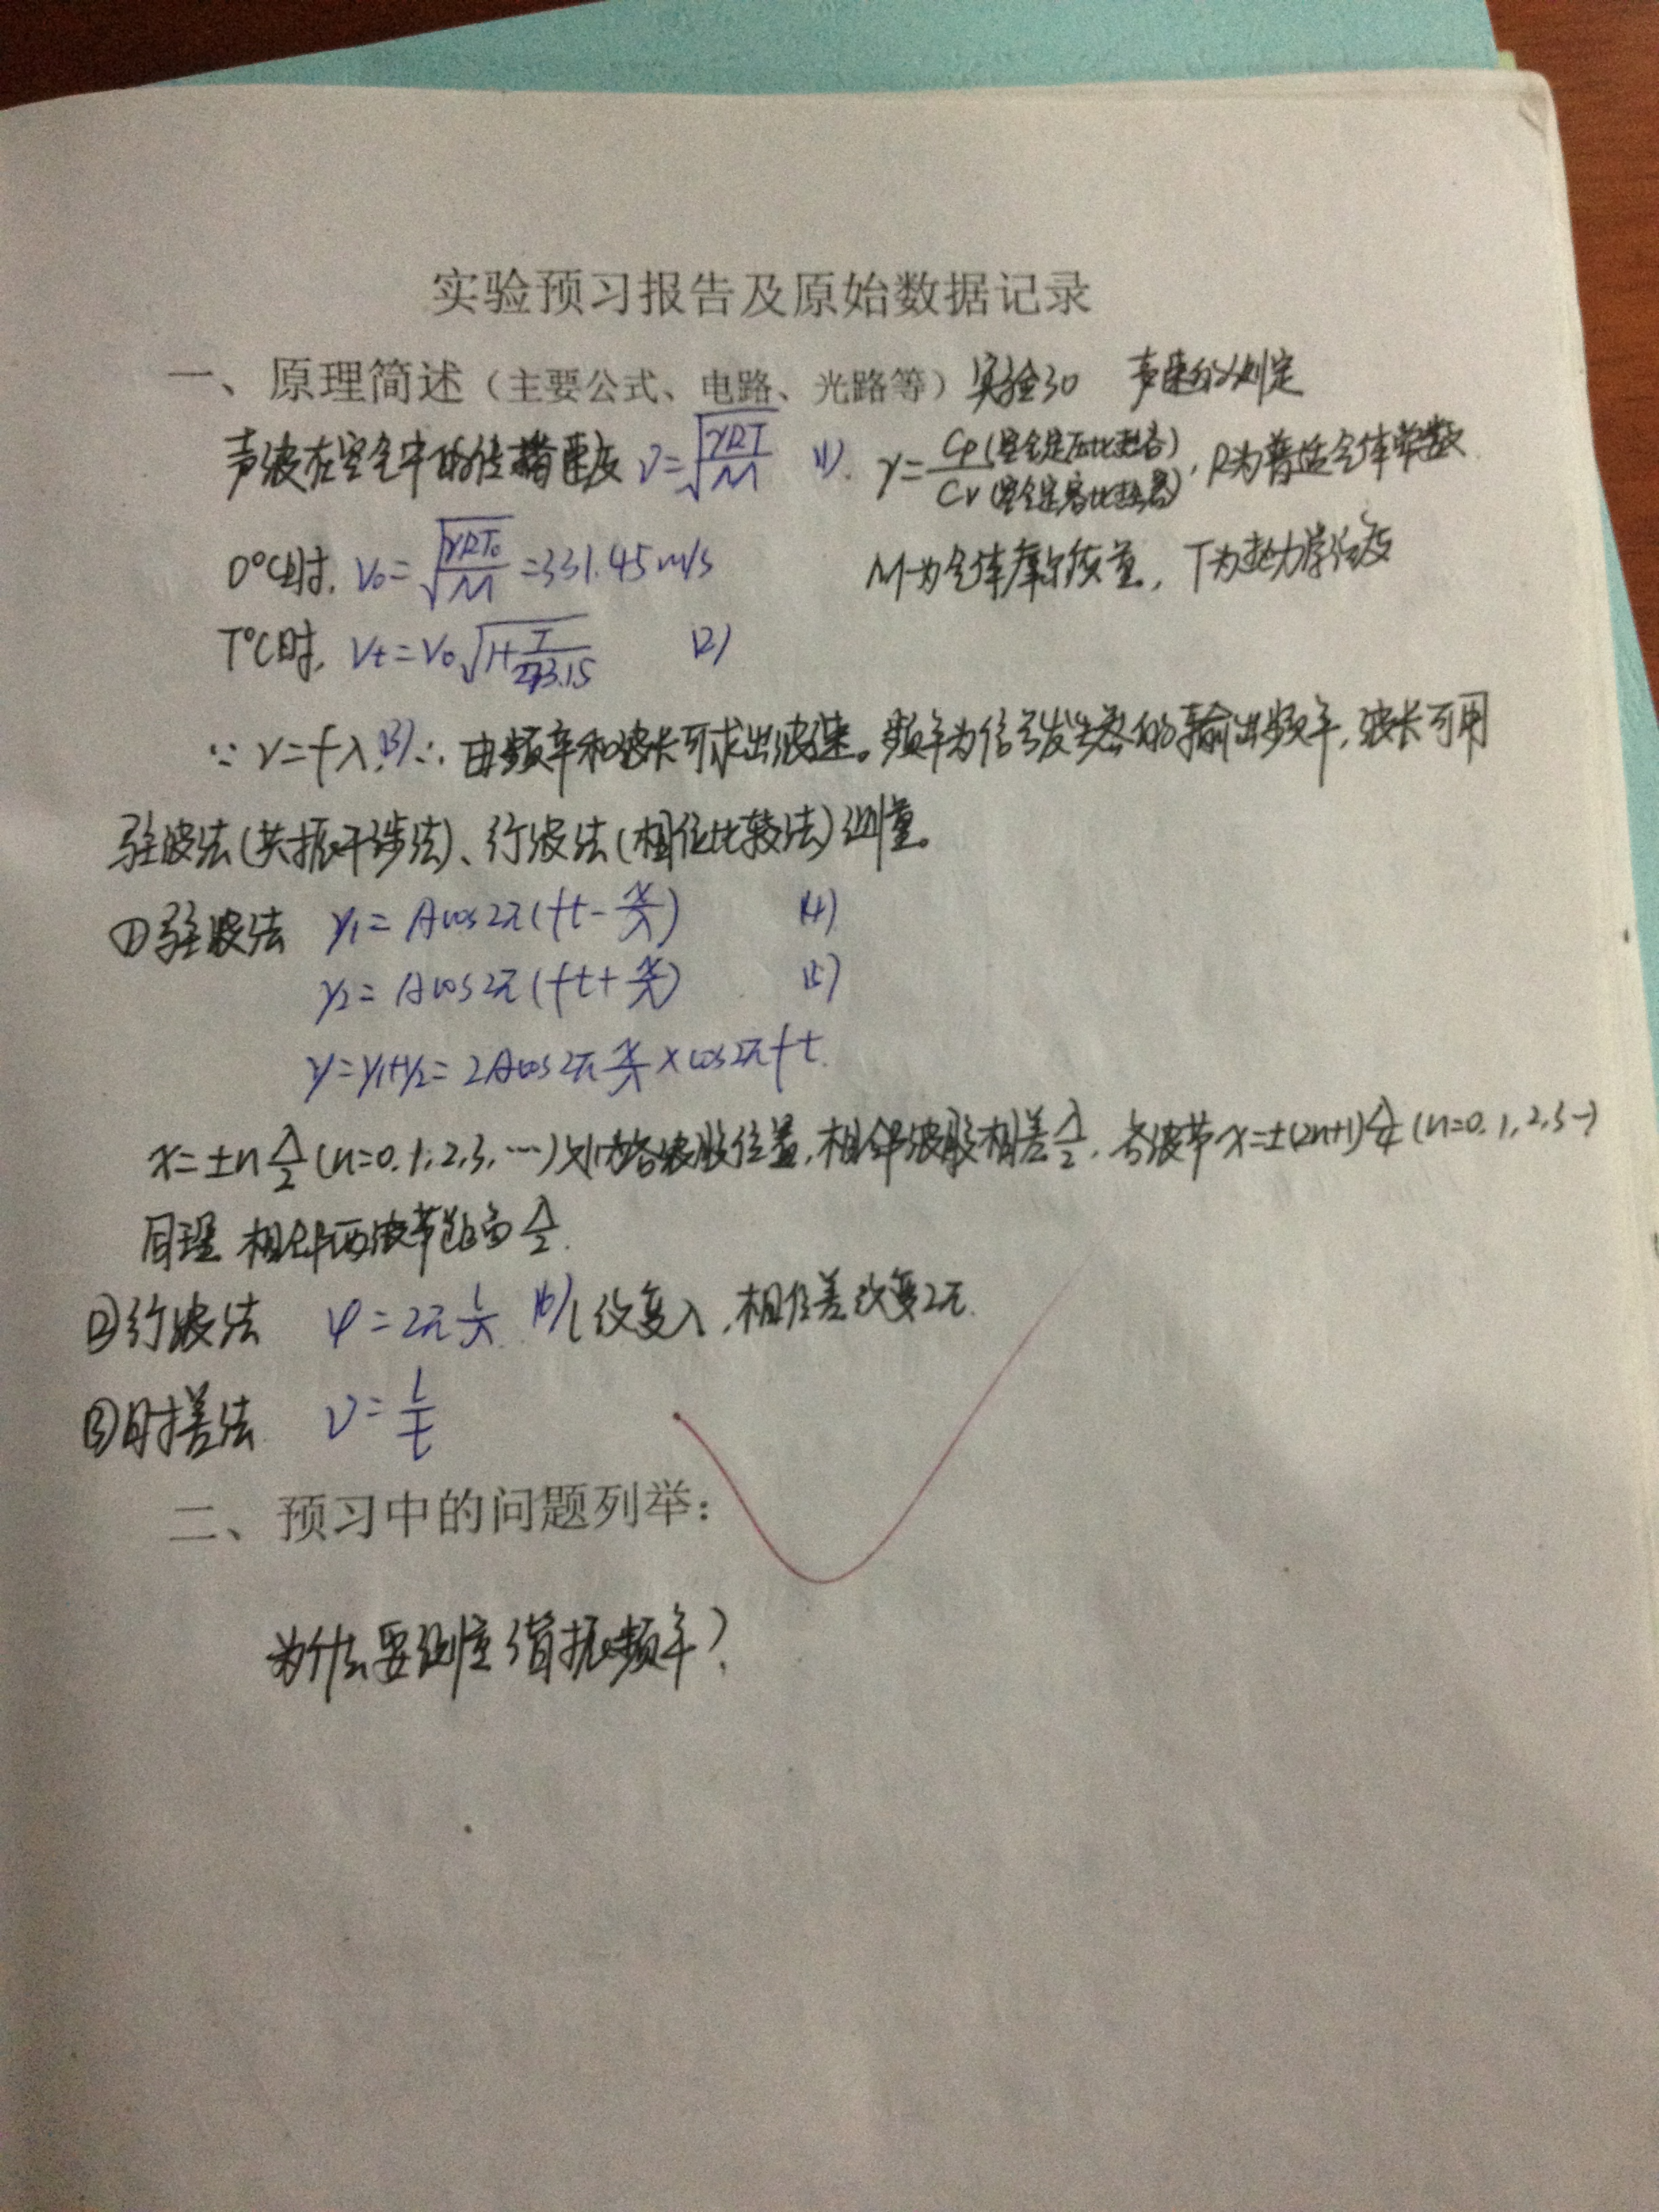 实验预习报告及原始数据记录
一、原理简述（主要公式、电路、光路等）实验30 声速的测定
声波在空气中的传播速度 v=√(γRT/M) (1). γ=Cp(空气定压比热容)/Cv(空气定容比热容), R为普适气体常数.
0℃时, v₀=√(γRT₀/M)=331.45m/s M为气体摩尔质量, T为热力学温度
T℃时, Vt=V₀√(1+T/273.15) (2)
∵ v=fλ,(3)∴ 由频率和波长可求出波速。频率为信号发生器的输出频率,波长可用
驻波法(共振干涉法)、行波法(相位比较法)测量。
①驻波法 y₁=Acos2π(ft-x/λ) (4)
y₂=Acos2π(ft+x/λ) (5)
y=y₁+y₂=2Acos2π x/λ × cos2πft.
x=±n λ/2 (n=0,1,2,3,…)对应各波腹位置,相邻波腹相差λ/2, 各波节x=±(2n+1)λ/4 (n=0,1,2,3…)
同理 相邻两波节也为λ/2.
②行波法 φ=2π l/λ. (6) l改变λ,相位差改变2π.
③时差法 v=L/t
二、预习中的问题列举：
为什么要测量谐振频率?